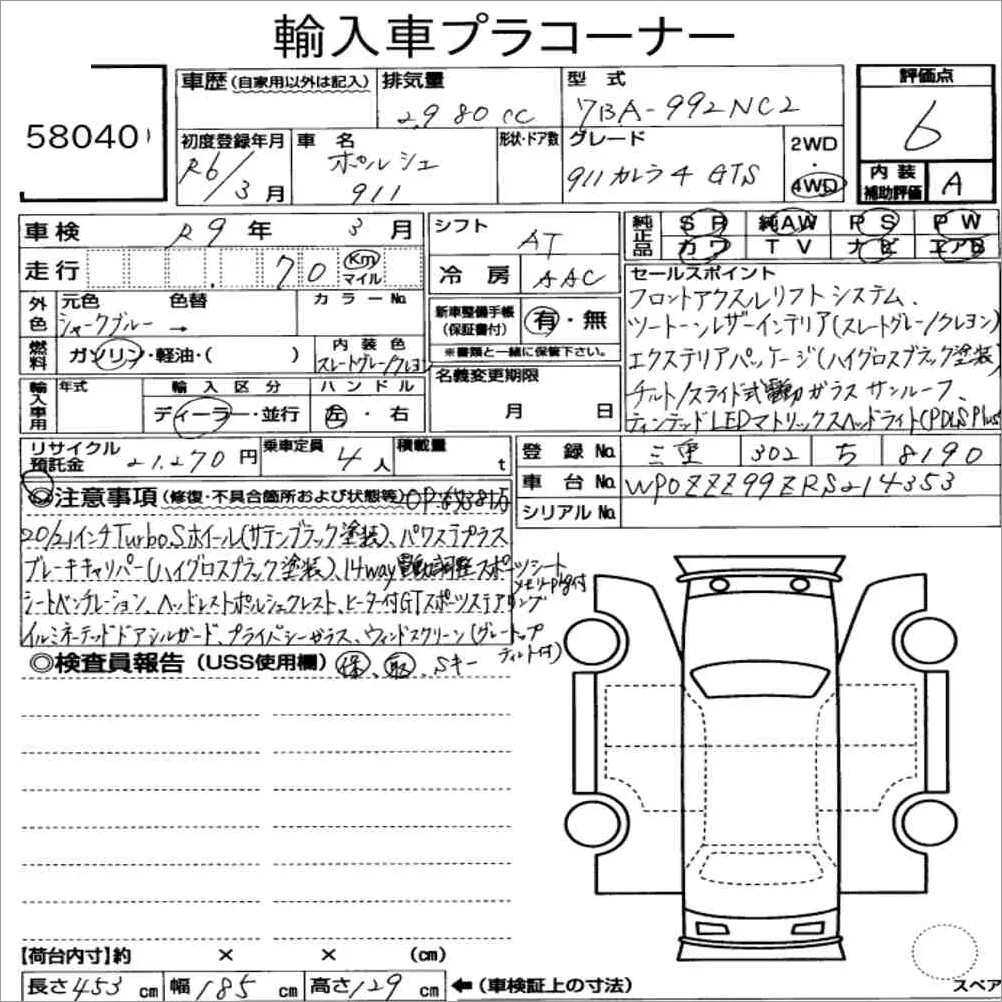 輸入車プラコーナー
58040
車歴(自家用以外は記入) 排気量 2980cc 型式 7BA-992NC2 評価点 6
初度登録年月 R6/3月 車名 ポルシェ 911 形状・ドア数 グレード 911カレラ4 GTS 2WD・4WD
内装補助評価 A
車検 R9年 3月 シフト AT
走行 70 Km マイル 冷房 AAC
純正品 SR 純AW PS PW
カワ TV ナビ エアB
外色 元色 色替 カラーNo.
シャークブルー →
新車整備手帳(保証書付) 有・無
※書類と一緒に保管下さい。
燃料 ガソリン・軽油・( ) 内装色 スレートグレー/クレヨン
輸入車用 年式 輸入区分 ハンドル
ディーラー・並行 左・右
名義変更期限
月 日
セールスポイント
フロントアクスルリフトシステム、
ツートーンレザーインテリア(スレートグレー/クレヨン)
エクステリアパッケージ(ハイグロスブラック塗装)
チルト/スライド式電動ガラスサンルーフ、
ティンテッドLEDマトリックスヘッドライト(PDLS Plus)
リサイクル預託金 21,270円 乗車定員 4人 積載量 t
登録No. 三重 302 ち 8190
車台No. WP0ZZZ99ZRS214353
シリアルNo.
◎注意事項(修復・不具合箇所および状態等)
20/21インチTurboSホイール(サテンブラック塗装)、パワステプラス
ブレーキキャリパー(ハイグロスブラック塗装)、14way電動調整スポーツシート
メモリーpkg付
シートベンチレーション、ヘッドレストポルシェクレスト、ヒーター付GTスポーツステアリング
イルミネーテッドドアシルガード、プライバシーガラス、ウィンドスクリーン(グレートップ
ティント付)
◎検査員報告(USS使用欄) 保、取、Sキー
【荷台内寸】約 × × (cm)
長さ453cm 幅185cm 高さ129cm ←(車検証上の寸法)
スペア